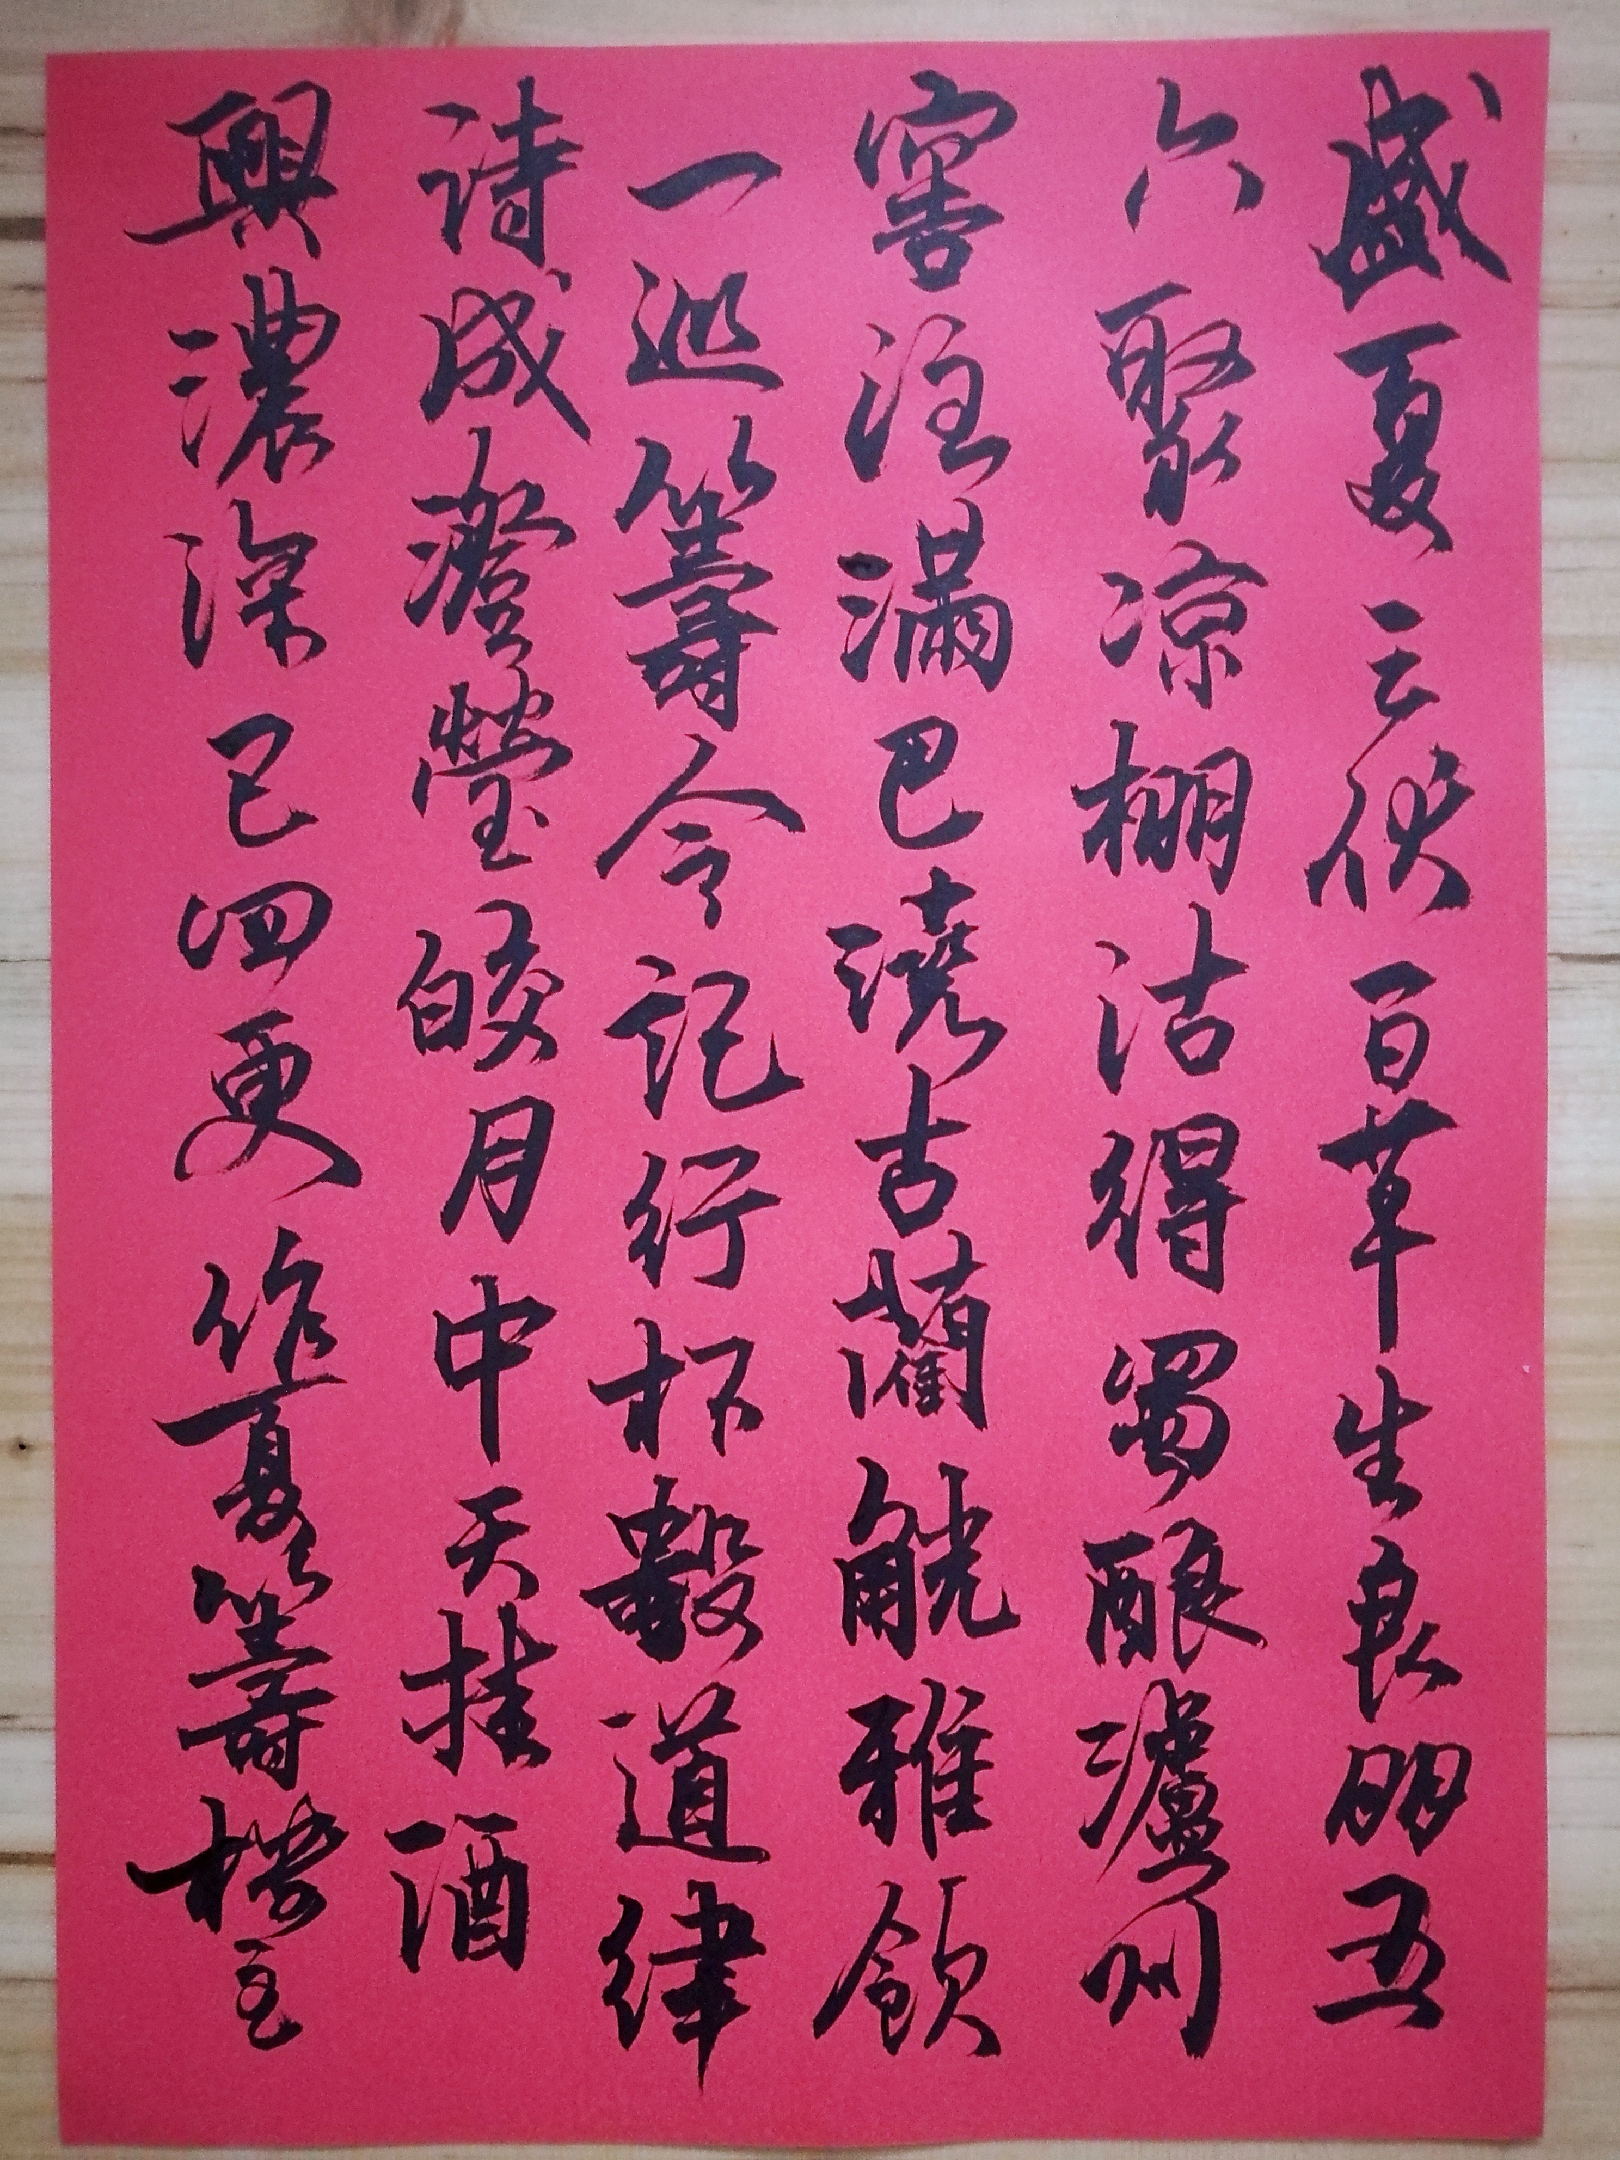 盛夏三伏百草生良朋五
六聚凉棚沽得蜀酿瀘州
窖注滿巴澆古藺觥雅飲
一巡籌令記行杯數道律
诗成澄瑩皎月中天挂酒
興濃深已四更作夏籌樓主